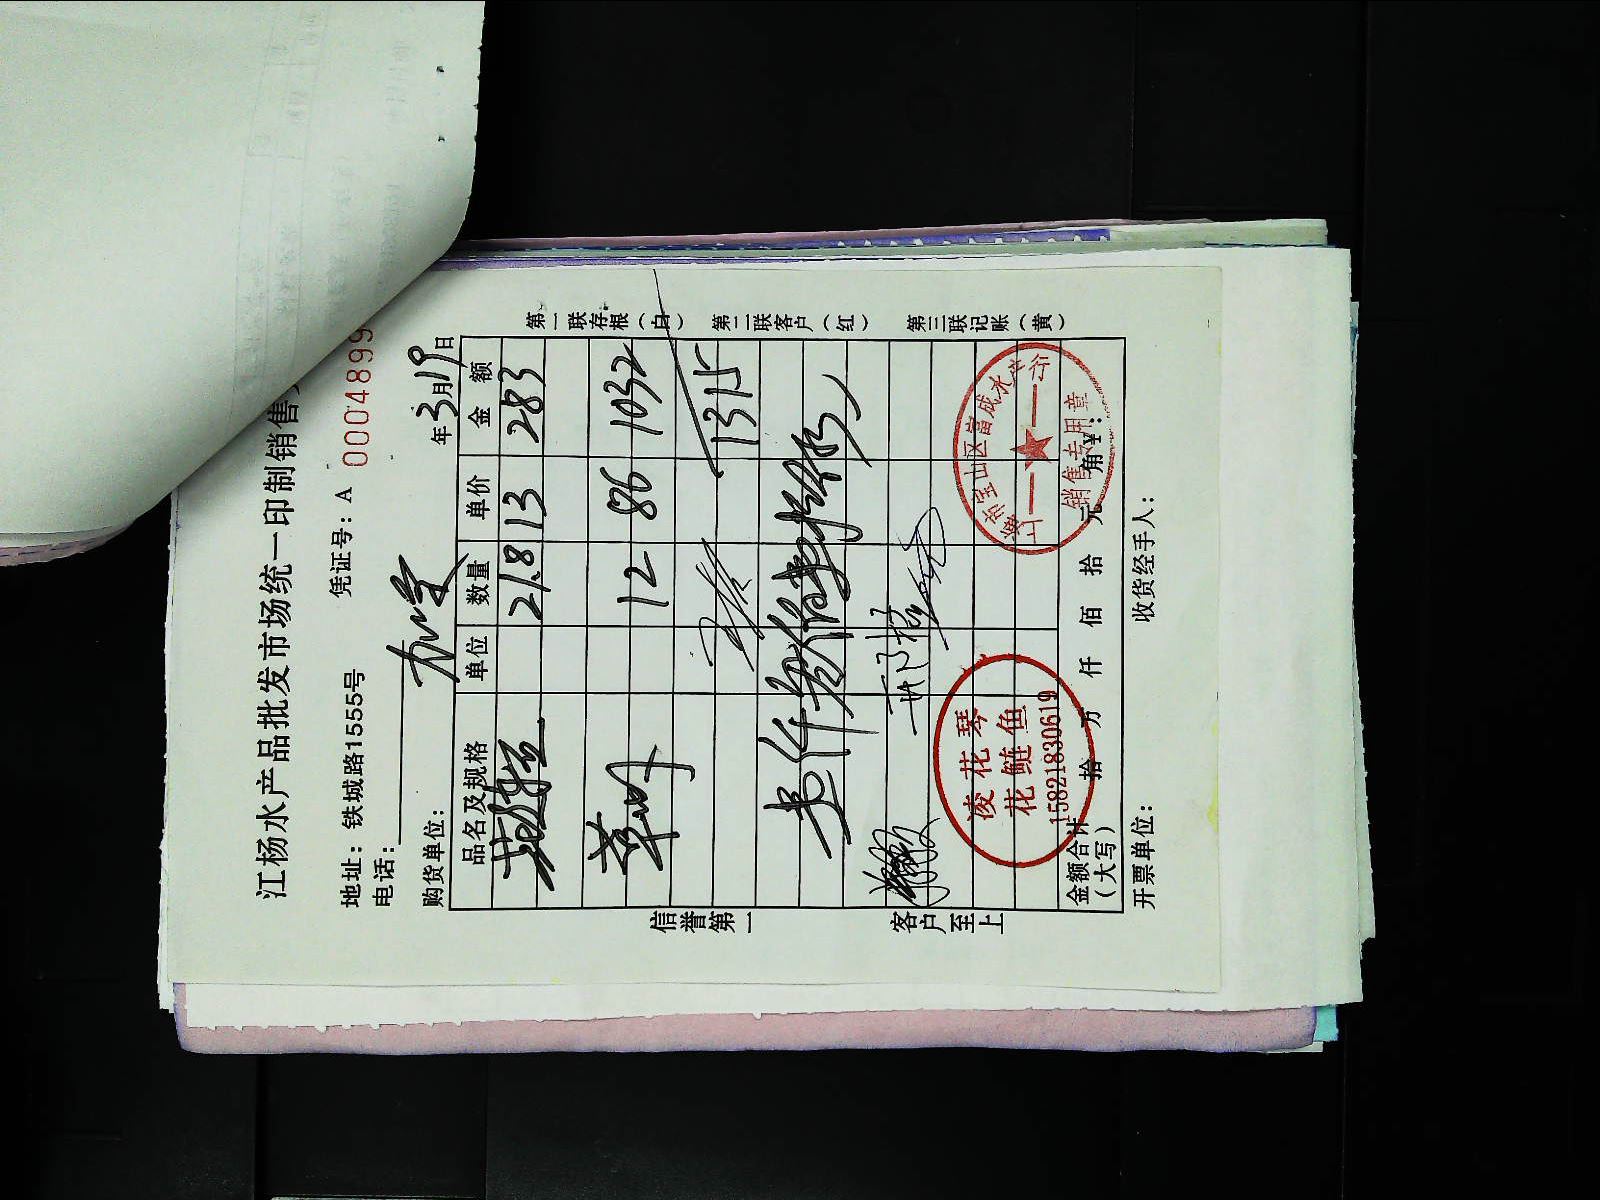 江杨水产品批发市场统一印制销售
地址：铁城路1555号 凭证号：A 0004899
电话：
购货单位： 年3月19日
品名及规格 单位 数量 单价 金额
21.8 13 283
12 86 1032
1315
金额合计（大写） 拾 万 仟 佰 拾 元 角 ￥：
开票单位： 收货经手人：
第一联存根（白） 第二联客户（红） 第三联记账（黄）
信誉第一 客户至上
凌花琴
花鲢鱼
15821830619
上海市宝山区富成水产行
销售专用章